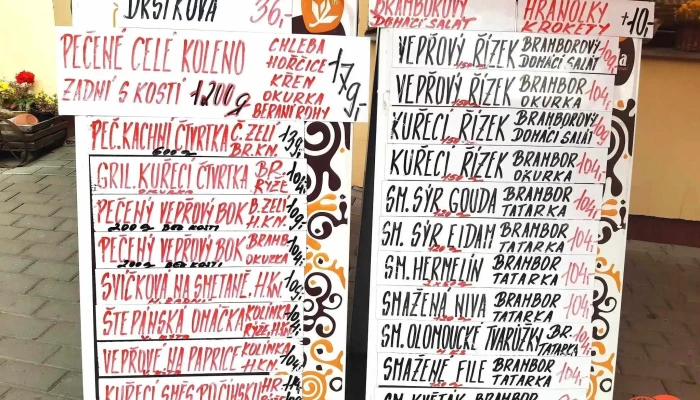 DRŠŤKOVÁ 36,-
PEČENÉ CELÉ KOLENO
ZADNÍ S KOSTÍ 1.200g
CHLEBA
HOŘČICE
KŘEN
OKURKA
BERANÍ ROHY
179,-
PEČ. KACHNÍ ČTVRTKA Č. ZELÍ
BR. KN.
GRIL. KUŘECÍ ČTVRTKA BR.
OKURKA RÝŽE
PEČENÝ VEPŘOVÝ BOK B. ZELÍ
200g BEZ KOSTI H.KN.
PEČENÝ VEPŘOVÝ BOK BRAMB
200g BEZ KOSTI OKURKA
SVÍČKOVÁ NA SMETANĚ, H.KN.
ŠTĚPÁNSKÁ OMÁČKA KOLÍNKA
VEPŘOVÉ NA PAPRICE KOLÍNKA
H.KN.
KUŘECÍ SMĚS
BRAMBOROVÝ
DOMÁCÍ SALÁT
HRANOLKY
KROKETY
+10,-
VEPŘOVÝ ŘÍZEK BRAMBOROVÝ
150g DOMÁCÍ SALÁT
VEPŘOVÝ ŘÍZEK BRAMBOR 104,-
150g OKURKA
KUŘECÍ ŘÍZEK BRAMBOROVÝ
150g DOMÁCÍ SALÁT
KUŘECÍ ŘÍZEK BRAMBOR 104,-
150g OKURKA
SM. SÝR GOUDA BRAMBOR 104,-
120g TATARKA
SM. SÝR EIDAM BRAMBOR 104,-
120g TATARKA
SM. HERMELÍN BRAMBOR 104,-
TATARKA
SMAŽENÁ NIVA BRAMBOR 104,-
120g TATARKA
SM. OLOMOUCKÉ TVARŮŽKY BR.
TATARKA
SMAŽENÉ FILÉ BRAMBOR
TATARKA
SM. KVĚTÁK BRAMBOR